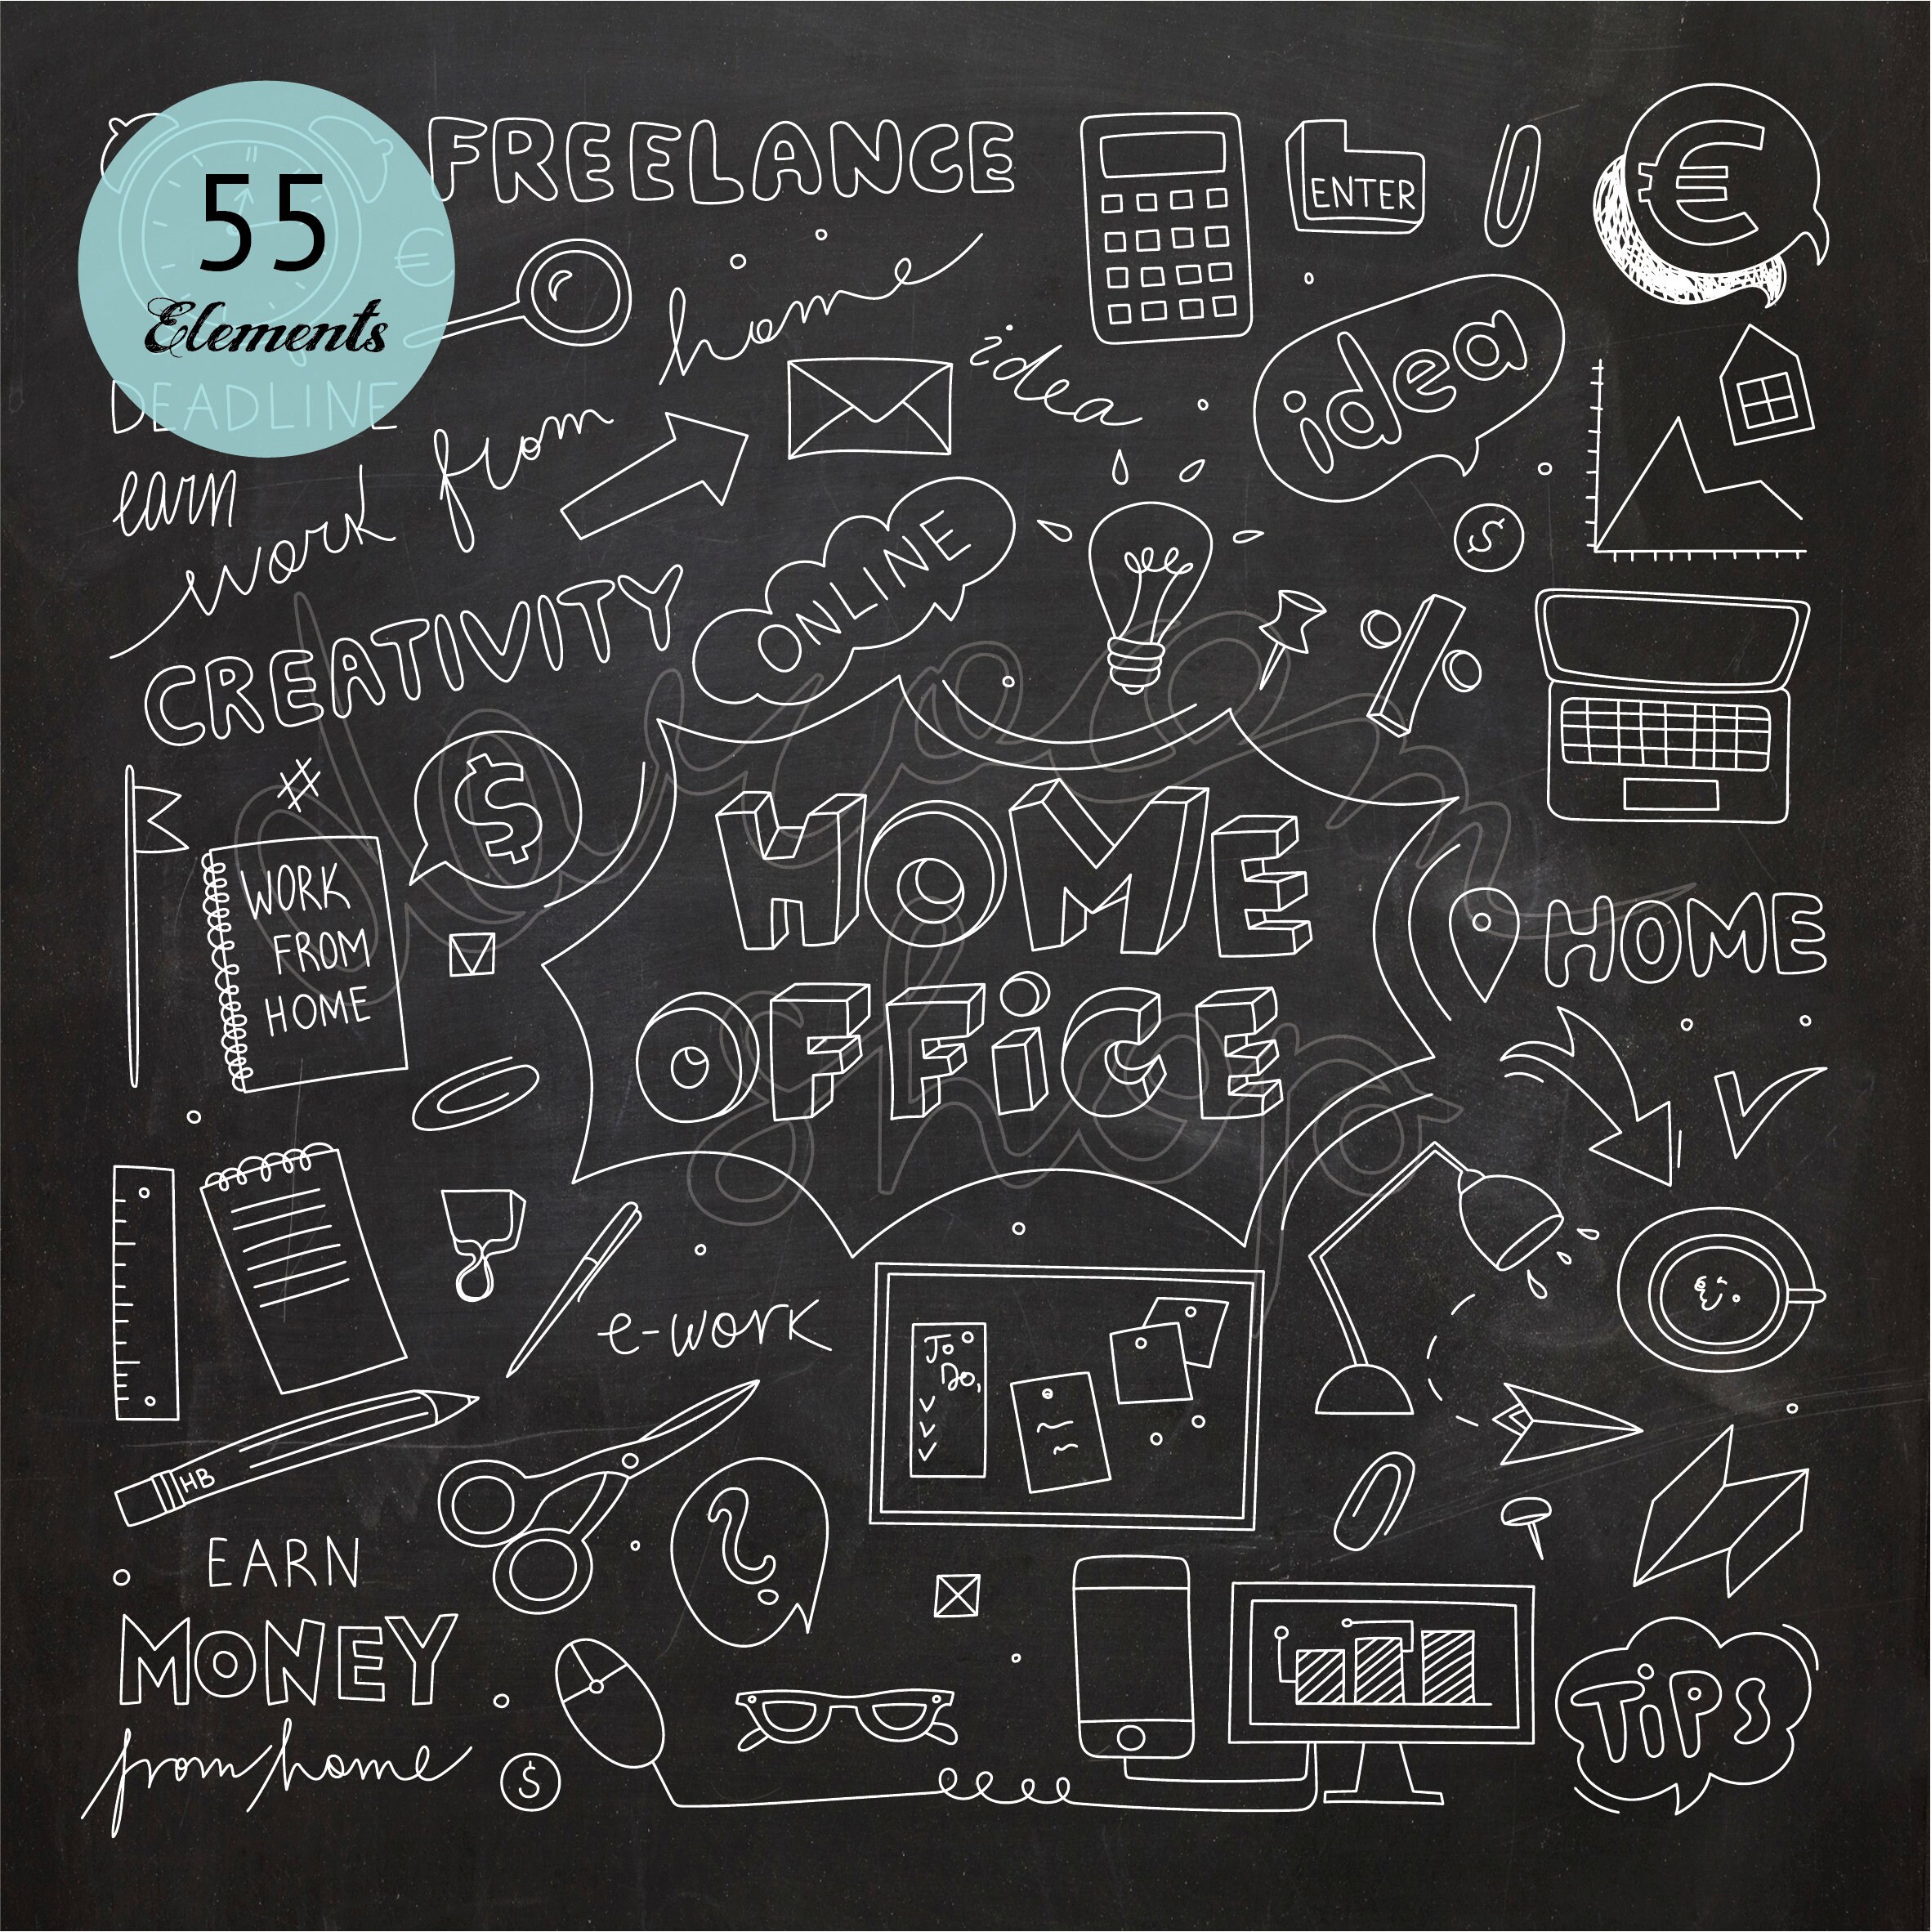 55
Elements
FREELANCE
ENTER
€
€
home
idea
idea
DEADLINE
earn
work from
$
ONLINE
CREATIVITY
%
#
$
WORK
FROM
HOME
HOME
OFFiCE
HOME
daream
shop
e-work
To
Do,
HB
?
EARN
MONEY
from home
$
TiPS